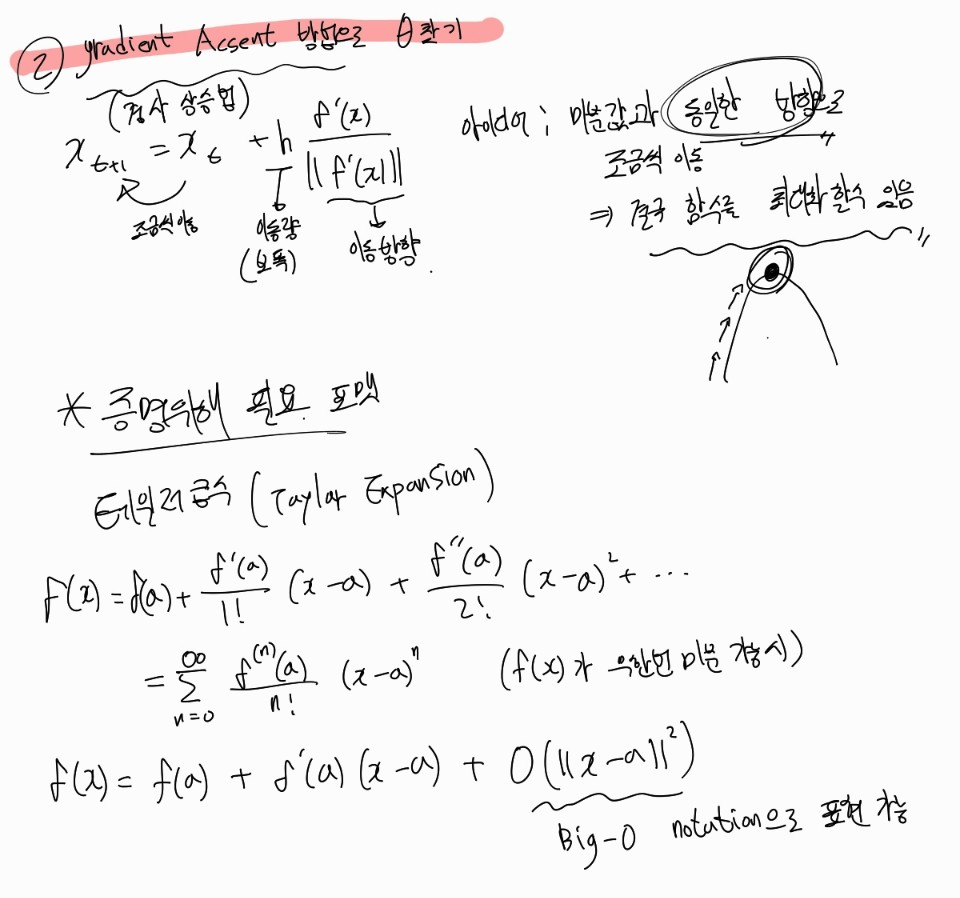 ② gradient Accent 방법으로 θ찾기
(경사 상승법)
x_{t+1} = x_t + h f'(x) / ||f'(x)||
조금씩이동
이동량
(보폭)
이동방향
아이디어 ; 미분값과 동일한 방향으로
조금씩 이동
⇒ 결국 함수를 최대화 할수 있음
* 증명위해 필요 포맷
테일러급수 (Taylar Expansion)
f(x) = f(a) + f'(a)/1! (x-a) + f''(a)/2! (x-a)^2 + ...
= ∑_{n=0}^{∞} f^{(n)}(a)/n! (x-a)^n (f(x)가 무한번 미분 가능시)
f(x) = f(a) + f'(a)(x-a) + O(||x-a||^2)
Big-O notation으로 표현 가능